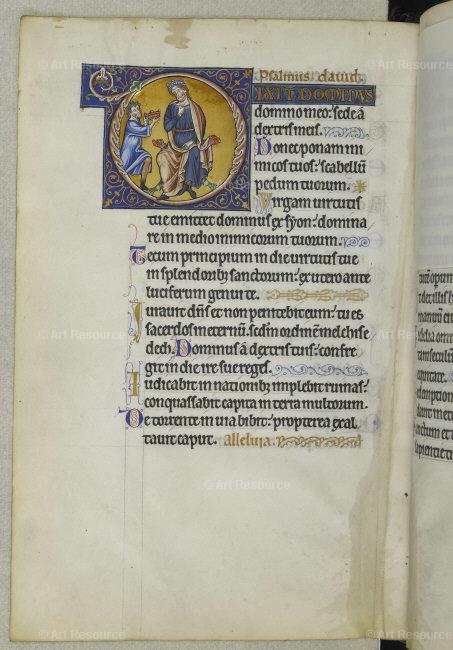 Psalmus dauid
IXIT DOMINUS
domino meo: sede a
dextris meis.
Donec ponam inimi
micos tuos: scabellũ
pedum tuorum.
Virgam uirtutis
tue emittet dominus ex syon: domina
re in medio inimicorum tuorum.
Tecum principium in die uirtutis tue
in splendorib; sanctorum: ex utero ante
luciferum genui te.
Iurauit dñs et non penitebit eum: tu es
sacerdos in eternũ. sedm̃ ordinem melchise
dech. Dominus a dextris tuis: confre
git in die ire sue reges.
Iudicabit in nationib; implebit ruinas:
conquassabit capita in terra multorum.
De torrente in uia bibit: propterea exal
tauit caput. alleluia.
© Art Resource